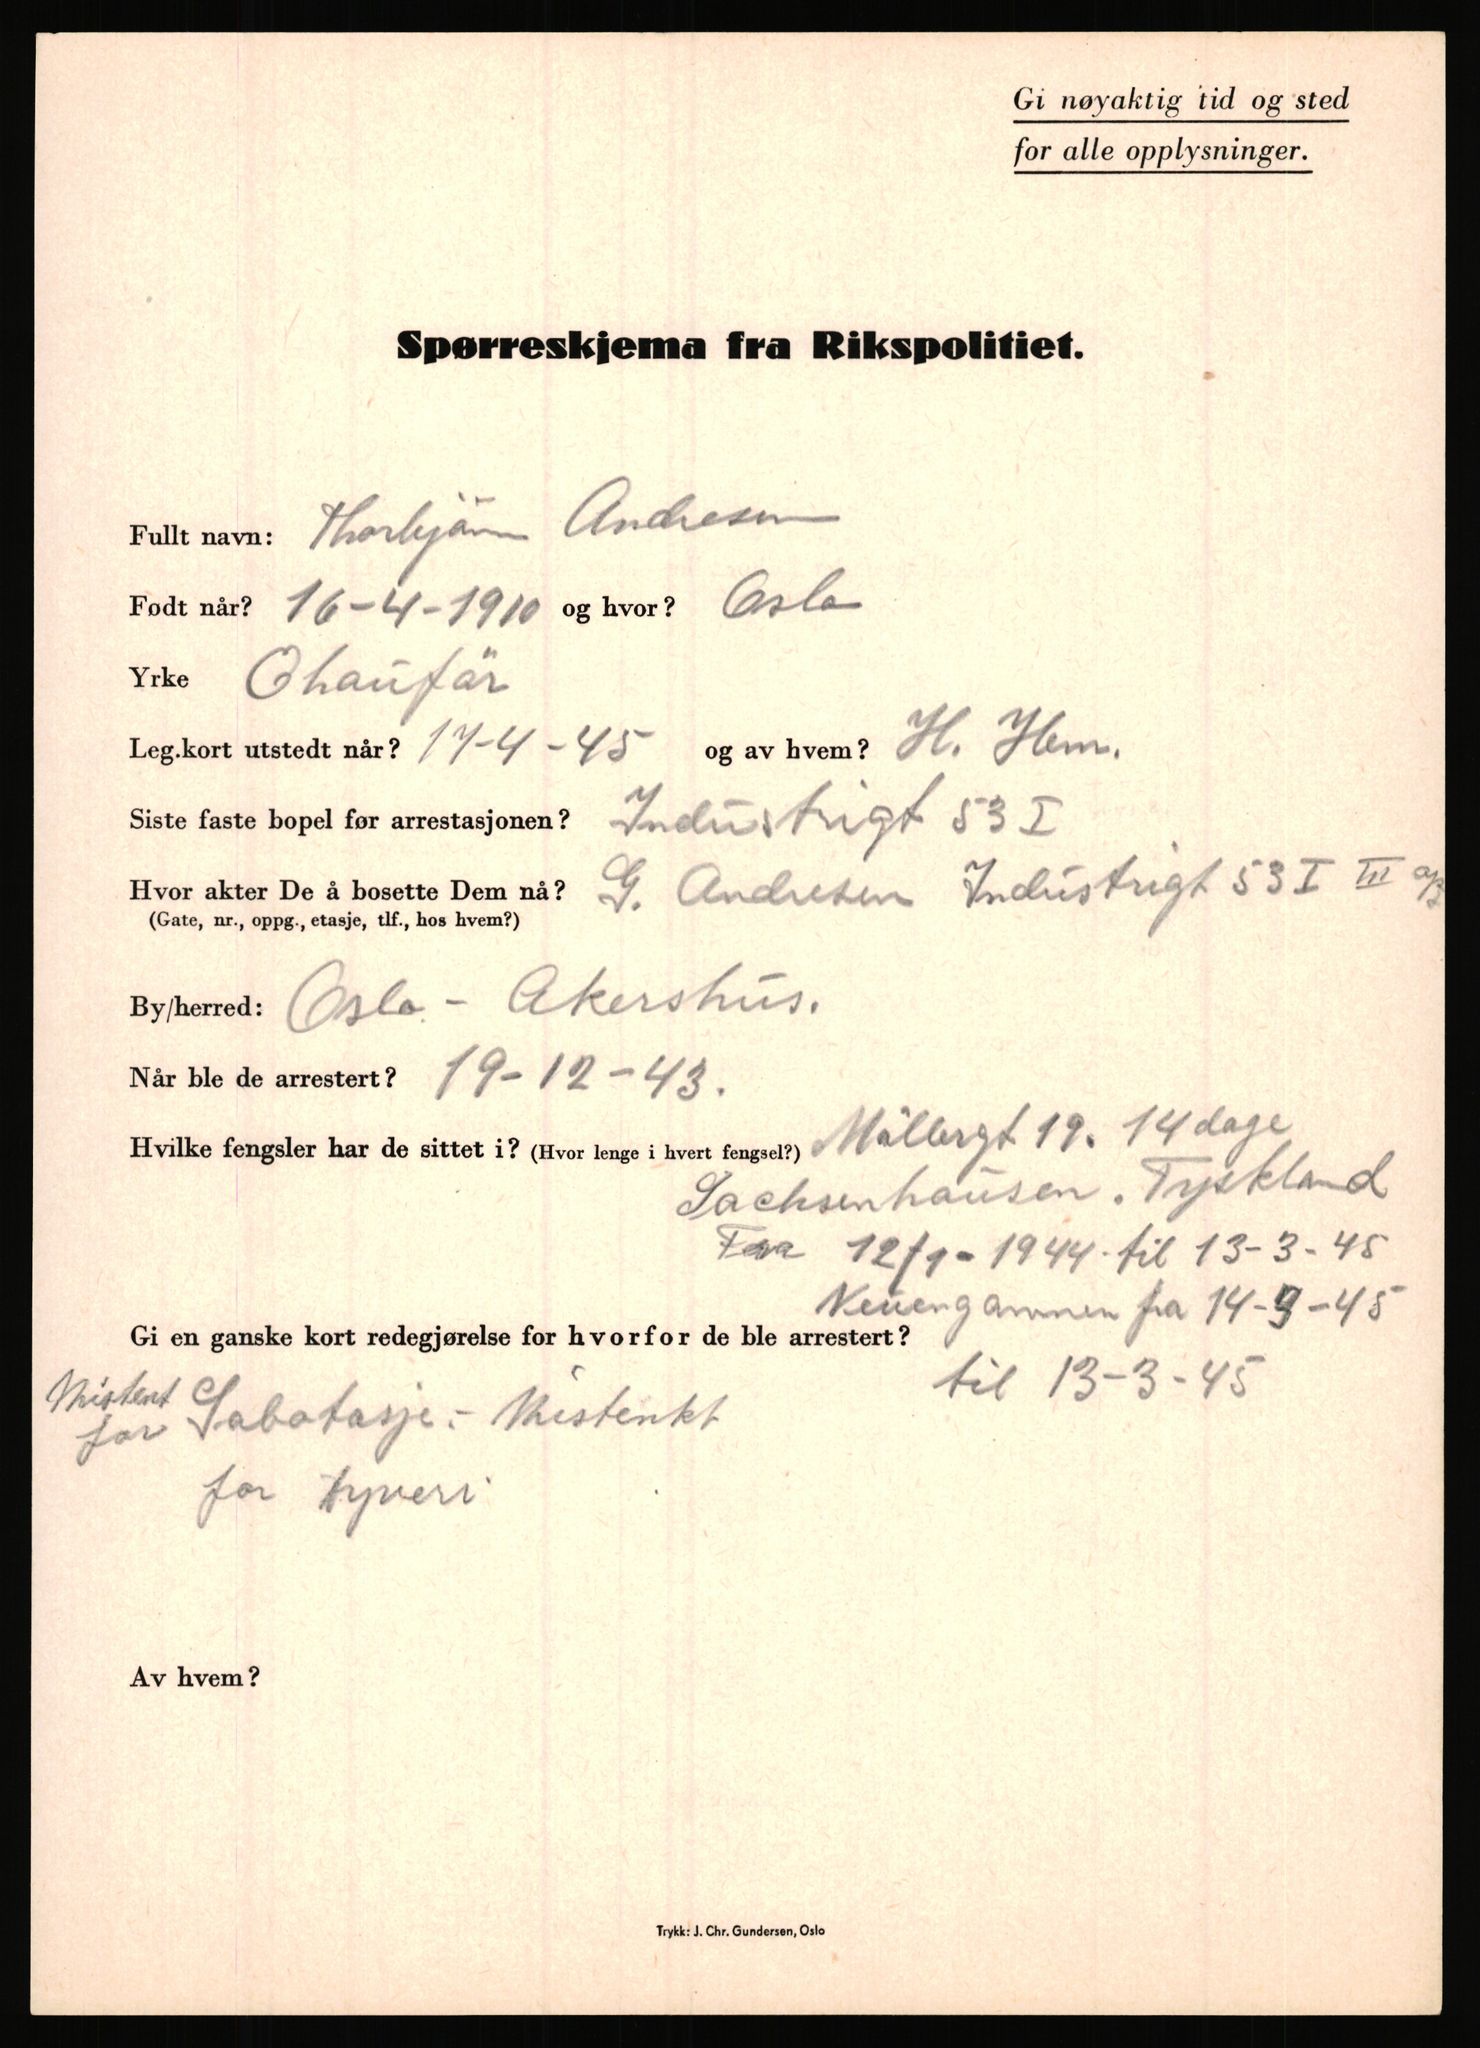 Gi nøyaktig tid og sted
for alle opplysninger.
Spørreskjema fra Rikspolitiet.
Fullt navn: Thorbjörn Andresen
Født når? 16-4-1910 og hvor? Oslo
Yrke Chaufför
Leg.kort utstedt når? 17-4-45 og av hvem? H. Hem.
Siste faste bopel før arrestasjonen? Industrigt 53 I
Hvor akter De å bosette Dem nå? G. Andresen Industrigt 53 I III opg
(Gate, nr., oppg., etasje, tlf., hos hvem?)
By/herred: Oslo - Akershus.
Når ble de arrestert? 19-12-43.
Hvilke fengsler har de sittet i? (Hvor lenge i hvert fengsel?) Möllergt 19. 14 dage
Sachsenhausen. Tyskland
Fra 12/1-1944 til 13-3-45
Neuengammen fra 14-3-45
Gi en ganske kort redegjørelse for hvorfor de ble arrestert?
til 13-3-45
Mistent
for Sabotasje.- Mistenkt
for tyveri
Av hvem?
Trykk: J. Chr. Gundersen, Oslo